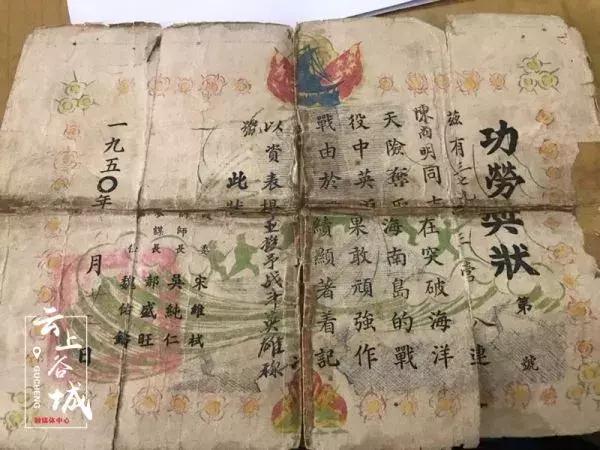 功勞獎狀
第 號
茲有 三營八連
陳尚明同志在突破海洋
天險奪取海南島的戰
役中英勇果敢頑強作
戰由於 績顯著着記
以資表揚並授予战斗英雄
此狀
委 宋維栻
師長 吳純仁
參謀長 郝盛旺
任 魏佑鑄
一九五〇年 月 日
云上谷城
GUCHENG
融媒体中心